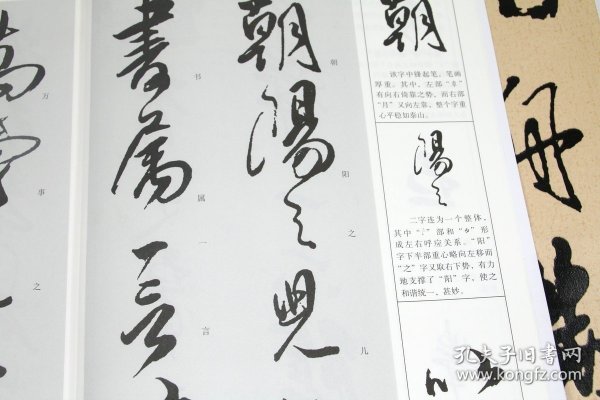 朝陽之兒
朝
阳
之
儿
書属一言
书
属
一
言
万
事
之
朝
该字中锋起笔，笔画
厚重。其中，左部“𠦝”
有向右倚靠之势，而右部
“月”又向左靠，整个字重
心平稳如泰山。
陽之
二字连为一个整体，
形
成左右呼应关系。“阳”
字下半部重心略向左移而
“之”字又取右下势，有力
地支撑了“阳”字，使之
和谐统一，甚妙。
孔夫子旧书网
www.kongfz.com